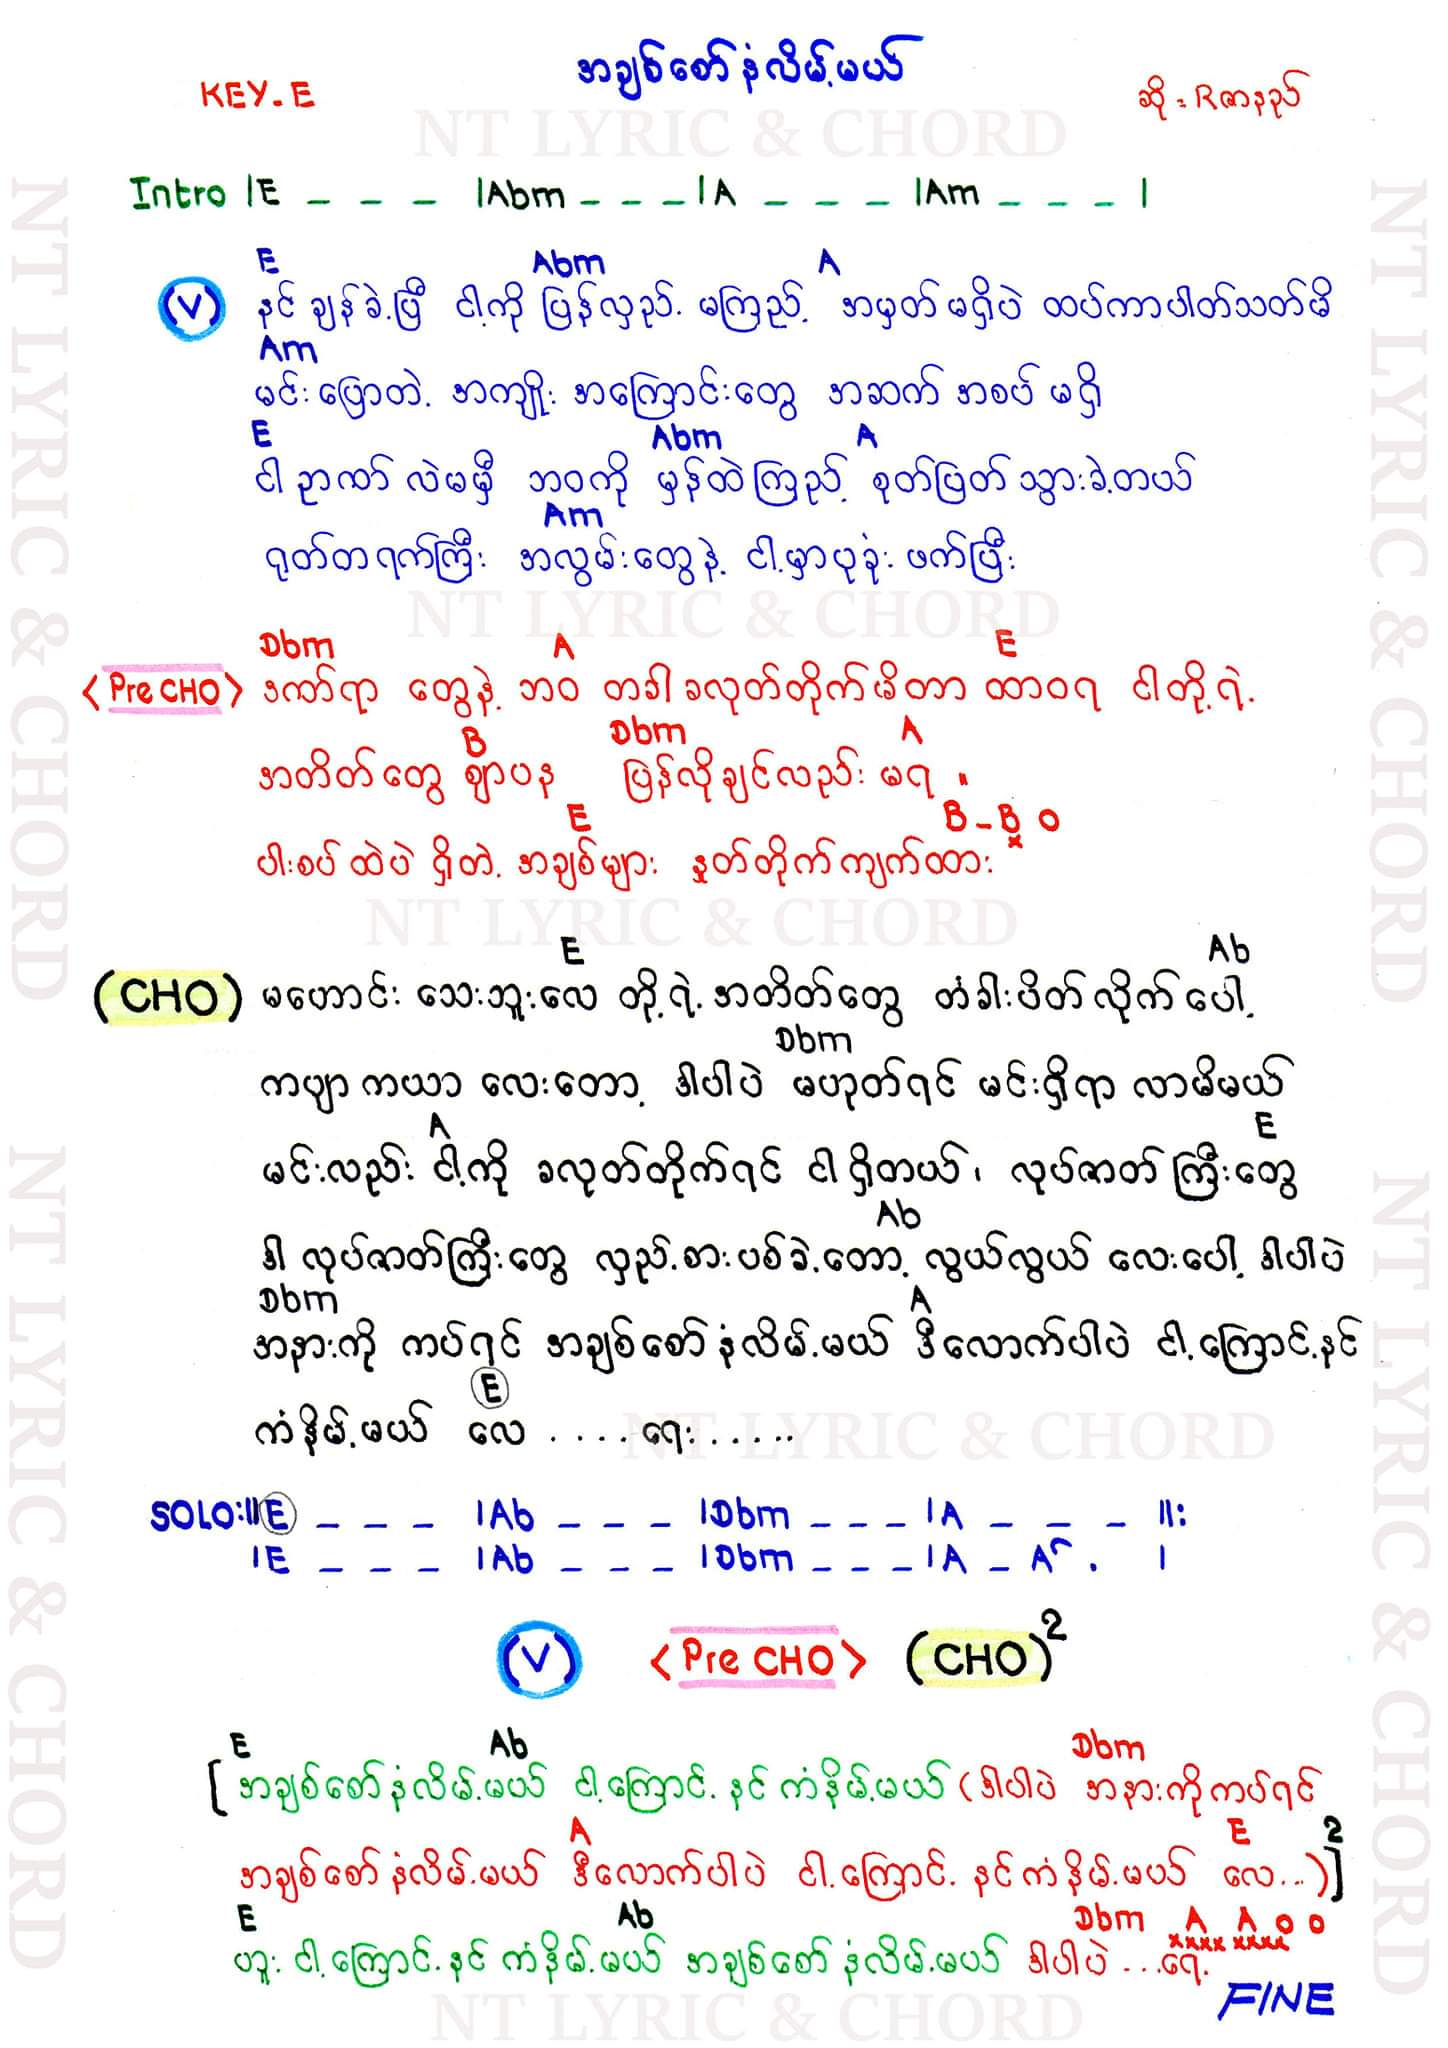 အချစ်စော်နံလိမ့်မယ်
KEY - E
ဆို = Rဇာနည်
NT LYRIC & CHORD
Intro |E _ _ _ |Abm _ _ _ |A _ _ _ |Am _ _ _ |
E Abm A
(V) နင် ချန်ခဲ့ပြီ ငါ့ကို ပြန်လှည့် မကြည့် အမှတ်မရှိပဲ ထပ်ကာပါတ်သတ်မိ
Am
မင်းပြောတဲ့ အကျိုး အကြောင်းတွေ အဆက် အစပ် မရှိ
E Abm A
ငါ ဉာဏ် လဲမမှီ ဘဝကို မှန်ထဲကြည့် စုတ်ပြတ် သွားခဲ့တယ်
Am
ရုတ်တရက်ကြီး အလွမ်းတွေနဲ့ ငါ့မှာပုခုံး ဖက်ပြီး
NT LYRIC & CHORD
Dbm A E
<Pre CHO> ဒဏ်ရာ တွေနဲ့ ဘဝ တခါ ခလုတ်တိုက်မိတာ ထာဝရ ငါတို့ရဲ့
B Dbm A
အတိတ်တွေ ဈာပန ပြန်လိုချင်လည်း မရ "
E B - B 0
ပါးစပ်ထဲပဲ ရှိတဲ့ အချစ်များ နှုတ်တိုက်ကျက်ထား
NT LYRIC & CHORD
E Ab
(CHO) မဟောင်း သေးဘူးလေ တို့ရဲ့ အတိတ်တွေ တံခါးပိတ်လိုက်ပေါ့
Dbm
ကဗျာ ကယာ လေးတော့ ဒါပါပဲ မဟုတ်ရင် မင်းရှိရာ လာမိမယ်
A E
မင်းလည်း ငါ့ကို ခလုတ်တိုက်ရင် ငါ ရှိတယ်၊ လုပ်ဇာတ်ကြီးတွေ
Ab
ဒါ လုပ်ဇာတ်ကြီးတွေ လှည့်စားပစ်ခဲ့တော့ လွယ်လွယ် လေးပေါ့ ဒါပါပဲ
Dbm A
အနားကို ကပ်ရင် အချစ်စော်နံလိမ့်မယ် ဒီလောက်ပါပဲ ငါ့ကြောင့်နင်
E
ကံနိမ့်မယ် လေ .... ရေး .....
NT LYRIC & CHORD
SOLO:||E _ _ _ |Ab _ _ _ |Dbm _ _ _ |A _ _ _ ||:
|E _ _ _ |Ab _ _ _ |Dbm _ _ _ |A _ A . |
(V) <Pre CHO> (CHO)²
E Ab Dbm
[ အချစ်စော်နံလိမ့်မယ် ငါ့ကြောင့် နင် ကံနိမ့်မယ် (ဒါပါပဲ အနားကိုကပ်ရင်
A E 2
အချစ်စော်နံလိမ့်မယ် ဒီလောက်ပါပဲ ငါ့ကြောင့် နင်ကံနိမ့်မယ် လေ...)]
E Ab Dbm A A 0 0
ဟူး ငါ့ကြောင့်နင် ကံနိမ့်မယ် အချစ်စော်နံလိမ့်မယ် ဒါပါပဲ ...ရေ့
xxxx xxxx
FINE
NT LYRIC & CHORD
NT LYRIC & CHORD
NT LYRIC & CHORD
NT LYRIC & CHORD
NT LYRIC & CHORD